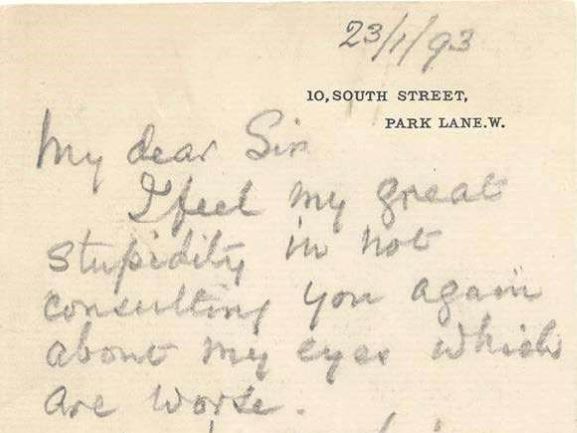 23/1/93
10, SOUTH STREET,
PARK LANE. W.
My dear Sir
I feel my great
stupidity in not
consulting you again
about my eyes which
are worse.